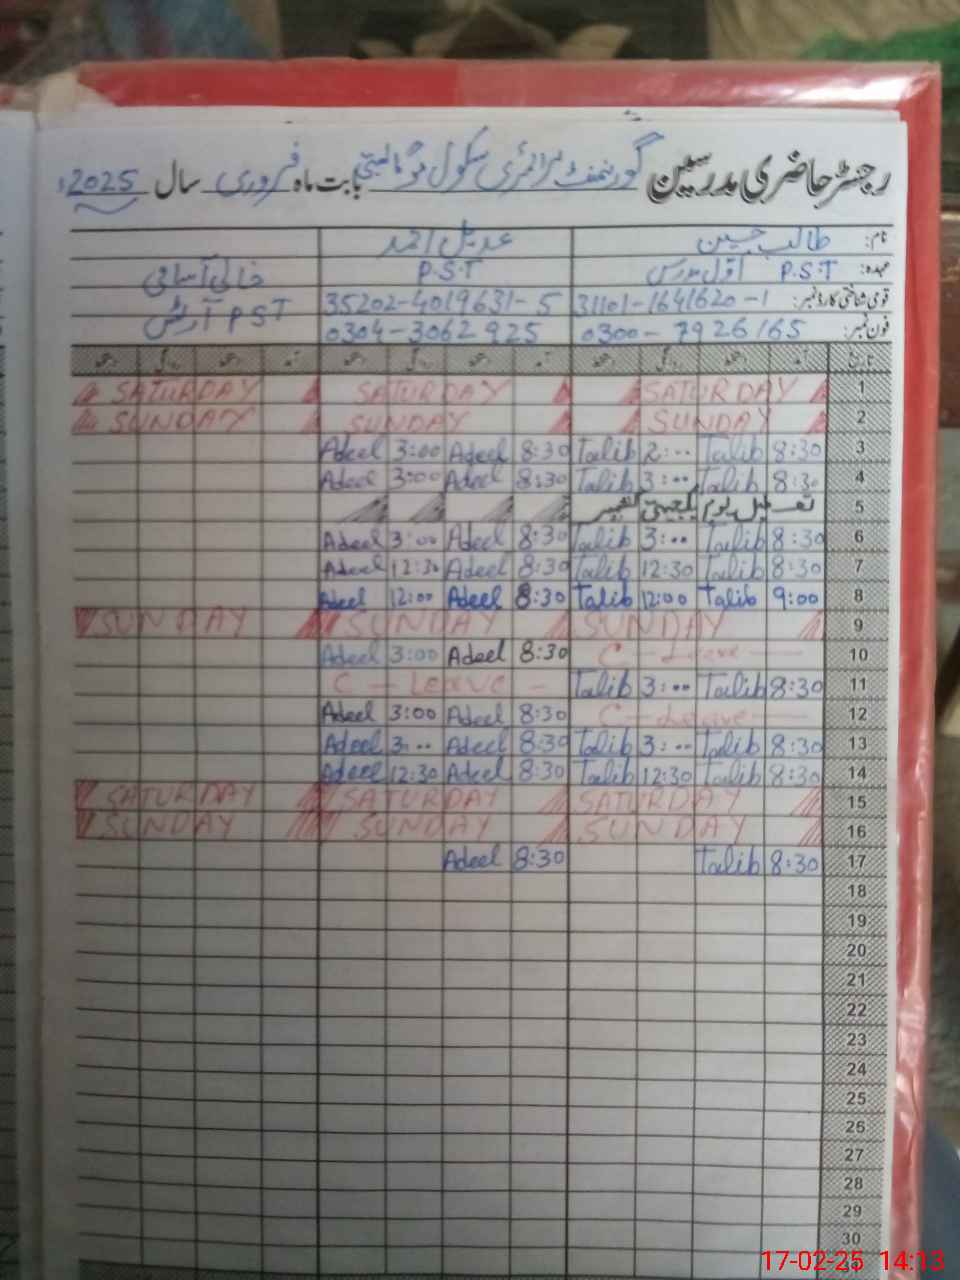 رجسٹر حاضری مدرسین گورنمنٹ پرائمری سکول بابت ماہ فروری سال 2025ء
نام: طالب حسین عدیل احمد
عہدہ: P.S.T اول مدرس P.S.T خالی آسامی
قومی شناختی کارڈ نمبر: 31101-1641620-1 35202-4019631-5 PST آرٹس
فون نمبر: 0300-7926165 0304-3062925
تاریخ آمد دستخط روانگی دستخط آمد دستخط روانگی دستخط آمد دستخط روانگی دستخط
SATURDAY SATURDAY SATURDAY 1
SUNDAY SUNDAY SUNDAY 2
Adeel 3:00 Adeel 8:30 Talib 2:00 Talib 8:30 3
Adeel 3:00 Adeel 8:30 Talib 3:00 Talib 8:30 4
تعطیل یوم یکجہتی کشمیر 5
Adeel 3:00 Adeel 8:30 Talib 3:00 Talib 8:30 6
Adeel 12:30 Adeel 8:30 Talib 12:30 Talib 8:30 7
Adeel 12:00 Adeel 8:30 Talib 12:00 Talib 9:00 8
SUNDAY SUNDAY SUNDAY 9
Adeel 3:00 Adeel 8:30 C - Leave 10
C - Leave - Talib 3:00 Talib 8:30 11
Adeel 3:00 Adeel 8:30 C - Leave 12
Adeel 3:00 Adeel 8:30 Talib 3:00 Talib 8:30 13
Adeel 12:30 Adeel 8:30 Talib 12:30 Talib 8:30 14
SATURDAY SATURDAY SATURDAY 15
SUNDAY SUNDAY SUNDAY 16
Adeel 8:30 Talib 8:30 17
18
19
20
21
22
23
24
25
26
27
28
29
30
17-02-25 14:13